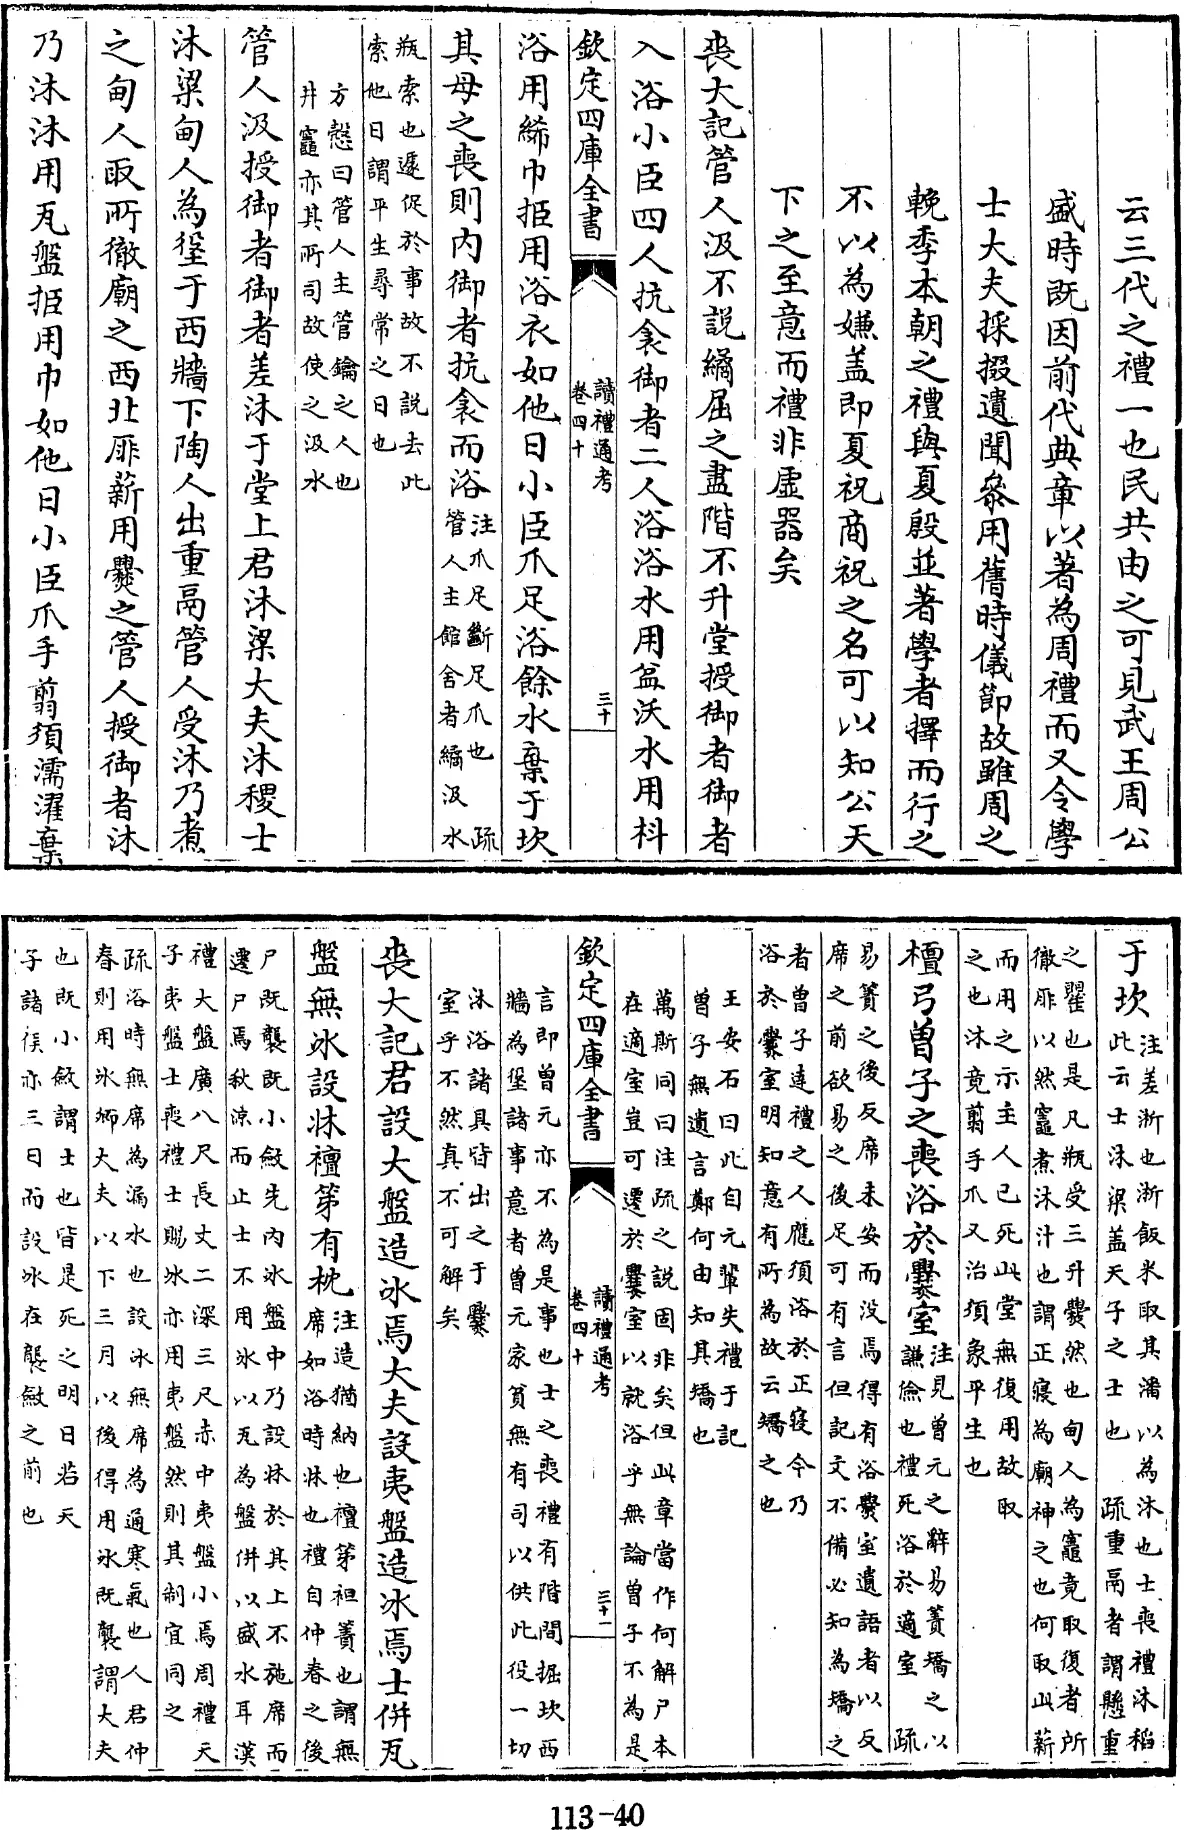 云三代之禮一也民共由之可見武王周公
盛時既因前代典章以著為周禮而又令學
士大夫採掇遺聞參用舊時儀節故雖周之
輓季本朝之禮與夏殷並著學者擇而行之
不以為嫌盖即夏祝商祝之名可以知公天
下之至意而禮非虛器矣
喪大記管人汲不説繘屈之盡階不升堂授御者御者
入浴小臣四人抗衾御者二人浴浴水用盆沃水用枓
欽定四庫全書
讀禮通考
卷四十
三十
浴用絺巾挋用浴衣如他日小臣爪足浴餘水棄于坎
其母之喪則内御者抗衾而浴
注爪足斷足爪也 疏
管人主館舍者繘汲水
瓶索也遽促於事故不説去此
索他日謂平生尋常之日也
方慤曰管人主管鑰之人也
井竈亦其所司故使之汲水
管人汲授御者御者差沐于堂上君沐梁大夫沐稷士
沐梁甸人為垼于西牆下陶人出重鬲管人受沐乃煮
之甸人取所徹廟之西北厞薪用爨之管人授御者沐
乃沐沐用瓦盤挋用巾如他日小臣爪手翦須濡濯棄
于坎
注差淅也淅飯米取其潘以為沐也士喪禮沐稻
此云士沐梁盖天子之士也 疏重鬲者謂懸重
之罌也是凡瓶受三升爨然也甸人為竈竟取復者所
徹厞以然竈煮沐汁也謂正寢為廟神之也何取此薪
而用之示主人已死此堂無復用故取
之也沐竟翦手爪又治須象平生也
檀弓曾子之喪浴於爨室
注見曾元之辭易簀矯之以
謙儉也禮死浴於適室 疏
易簀之後反席未安而没焉得有浴爨室遺語者以反
席之前欲易之後足可有言但記文不備必知為矯之
者曾子達禮之人應須浴於正寢今乃
浴於爨室明知意有所為故云矯之也
王安石曰此自元輩失禮于記
曾子無遺言鄭何由知其矯也
萬斯同曰注疏之說固非矣但此章當作何解尸本
在適室豈可遷於爨室以就浴乎無論曾子不為是
欽定四庫全書
讀禮通考
卷四十
三十一
言即曾元亦不為是事也士之喪禮有階間掘坎西
牆為垼諸事意者曾元家貧無有司以供此役一切
沐浴諸具皆出之于爨
室乎不然真不可解矣
喪大記君設大盤造冰焉大夫設夷盤造冰焉士併瓦
盤無冰設牀襢笫有枕
注造猶納也襢笫袒簀也謂無
席如浴時牀也禮自仲春之後
尸既襲既小斂先内冰盤中乃設牀於其上不施席而
遷尸焉秋涼而止士不用冰以瓦為盤併以盛水耳漢
禮大盤廣八尺長丈二深三尺赤中夷盤小焉周禮天
子夷盤士喪禮士賜冰亦用夷盤然則其制宜同之
疏浴時無席為漏水也設冰無席為通寒氣也人君仲
春則用冰卿大夫以下三月以後得用冰既襲謂大夫
也既小斂謂士也皆是死之明日若天
子諸侯亦三日而設冰在襲斂之前也
113-40